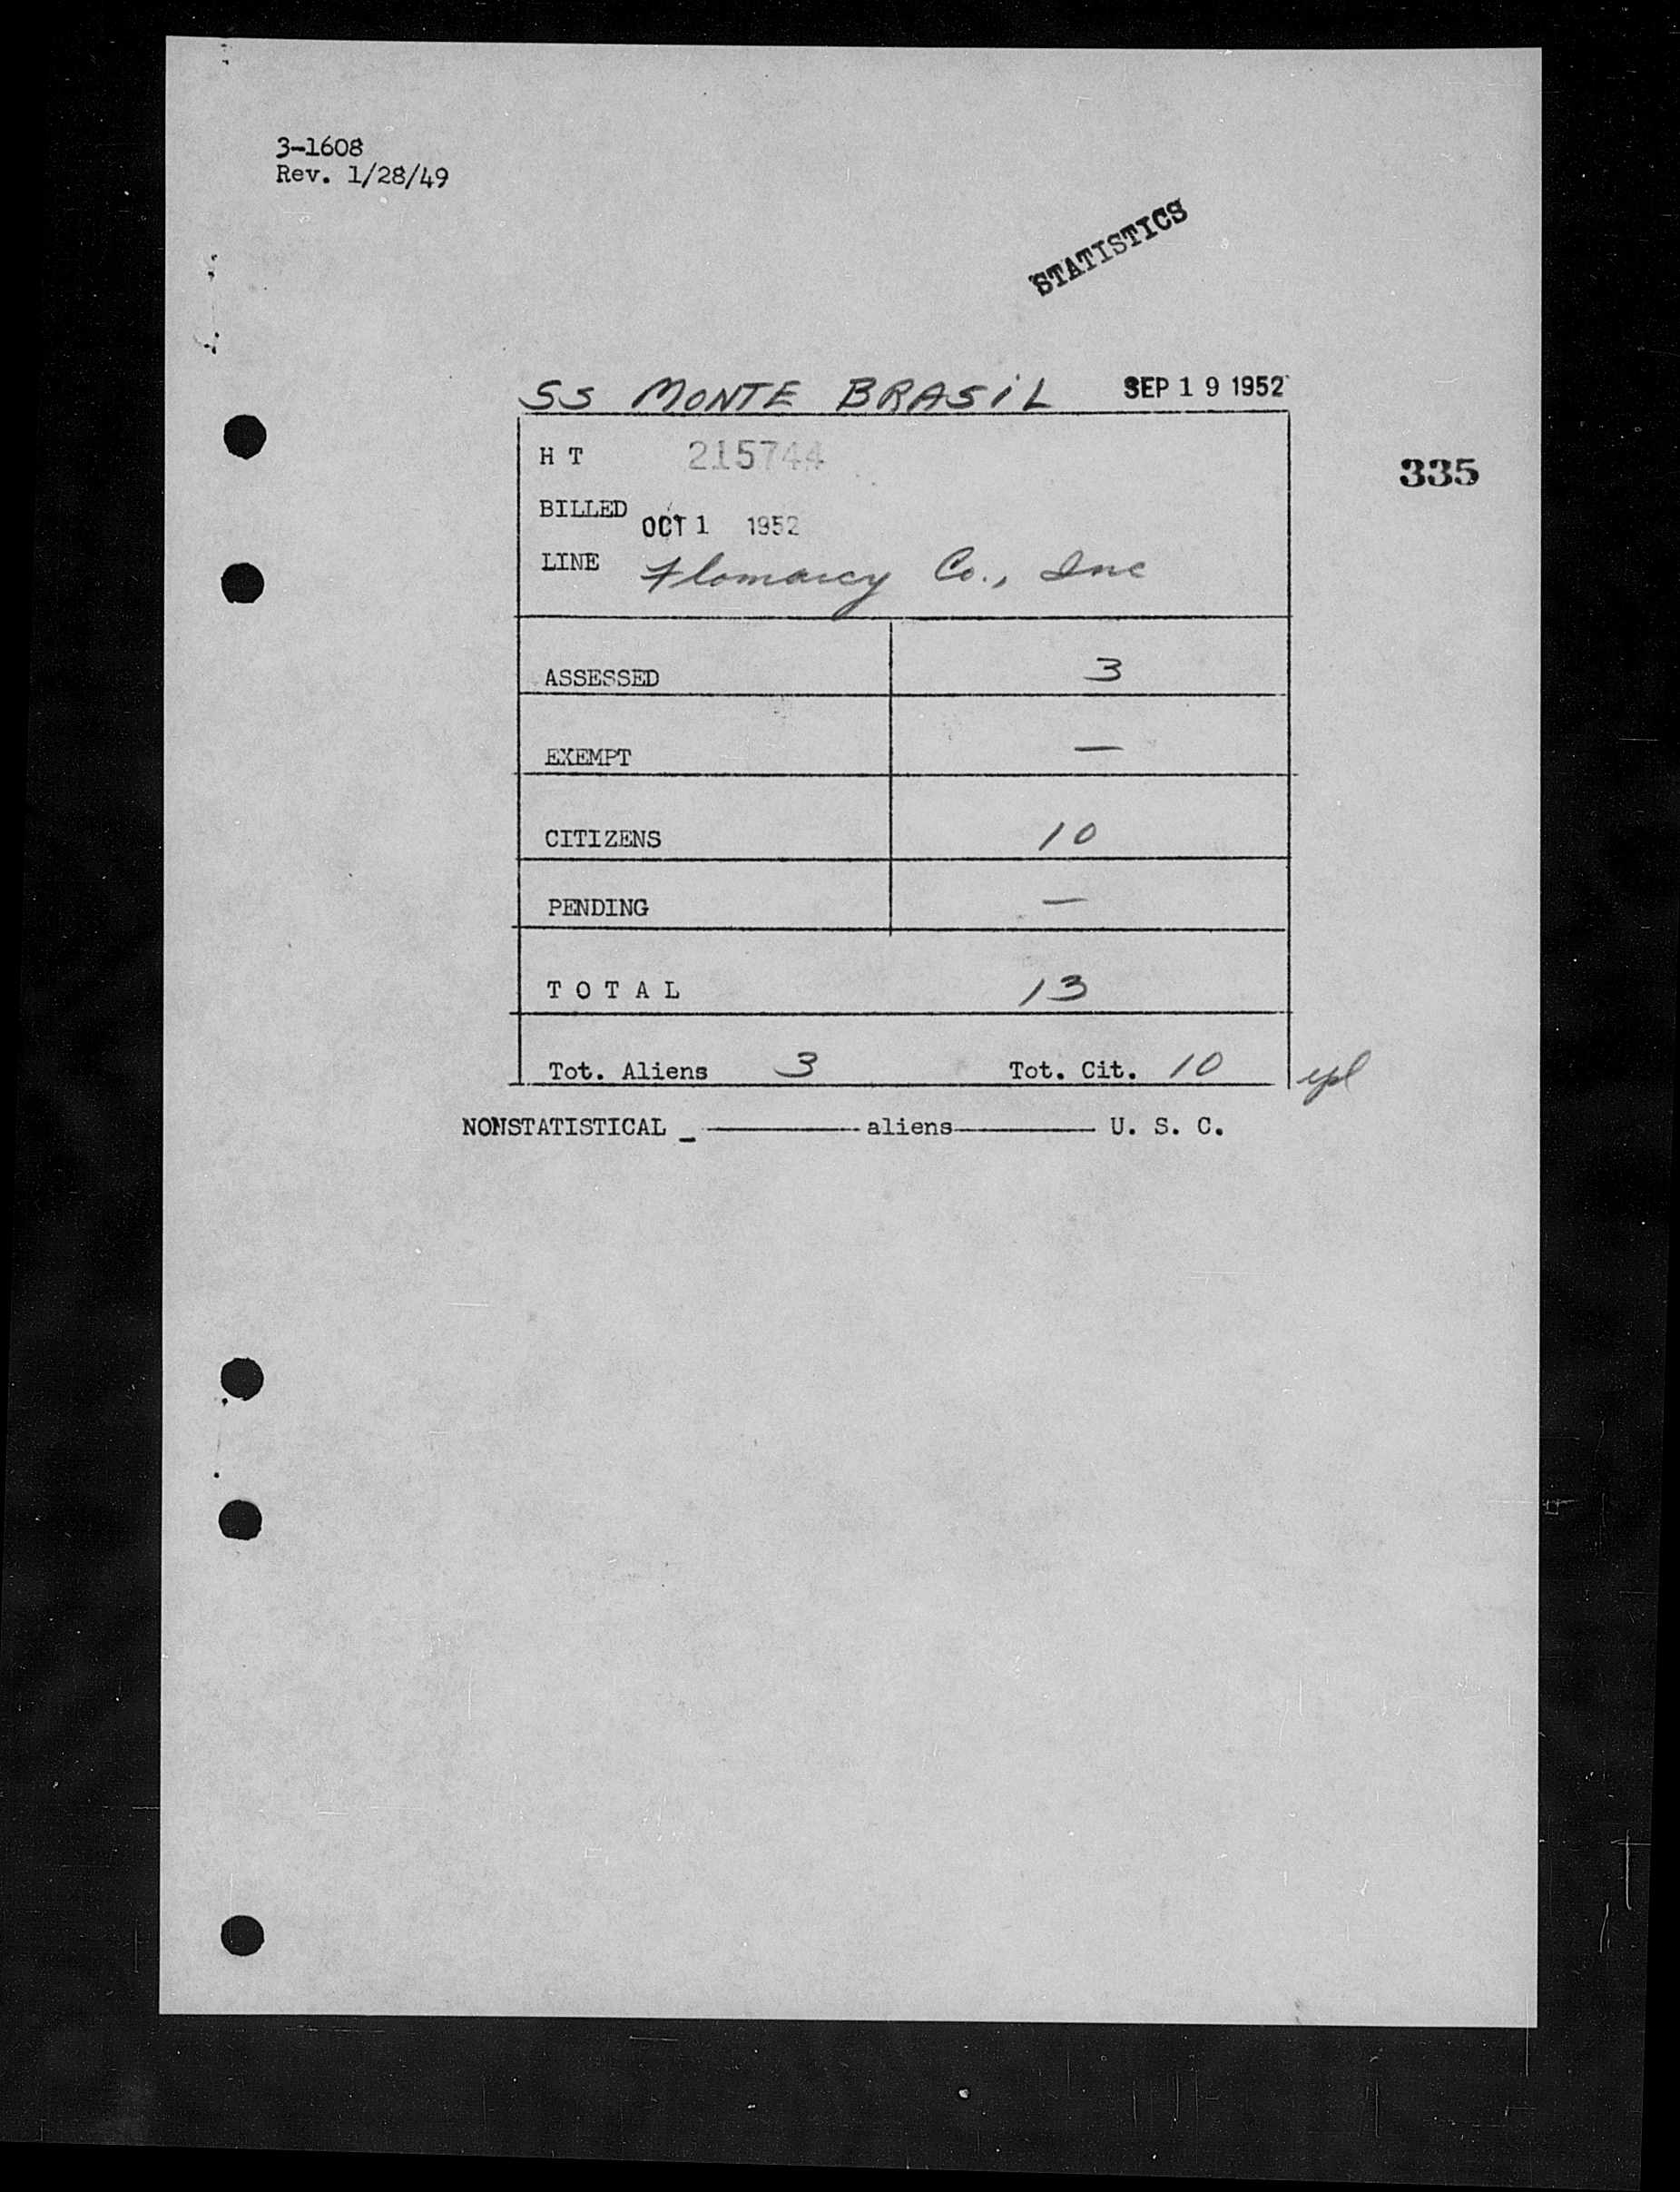 3-1608
Rev. 1/28/49
STATISTICS
SS MONTE BRASIL SEP 19 1952
335
H T 215744
BILLED OCT 1 1952
LINE Flomarcy Co., Inc
ASSESSED 3
EXEMPT —
CITIZENS 10
PENDING —
T O T A L 13
Tot. Aliens 3 Tot. Cit. 10
NONSTATISTICAL _ ———— aliens ———— U. S. C.